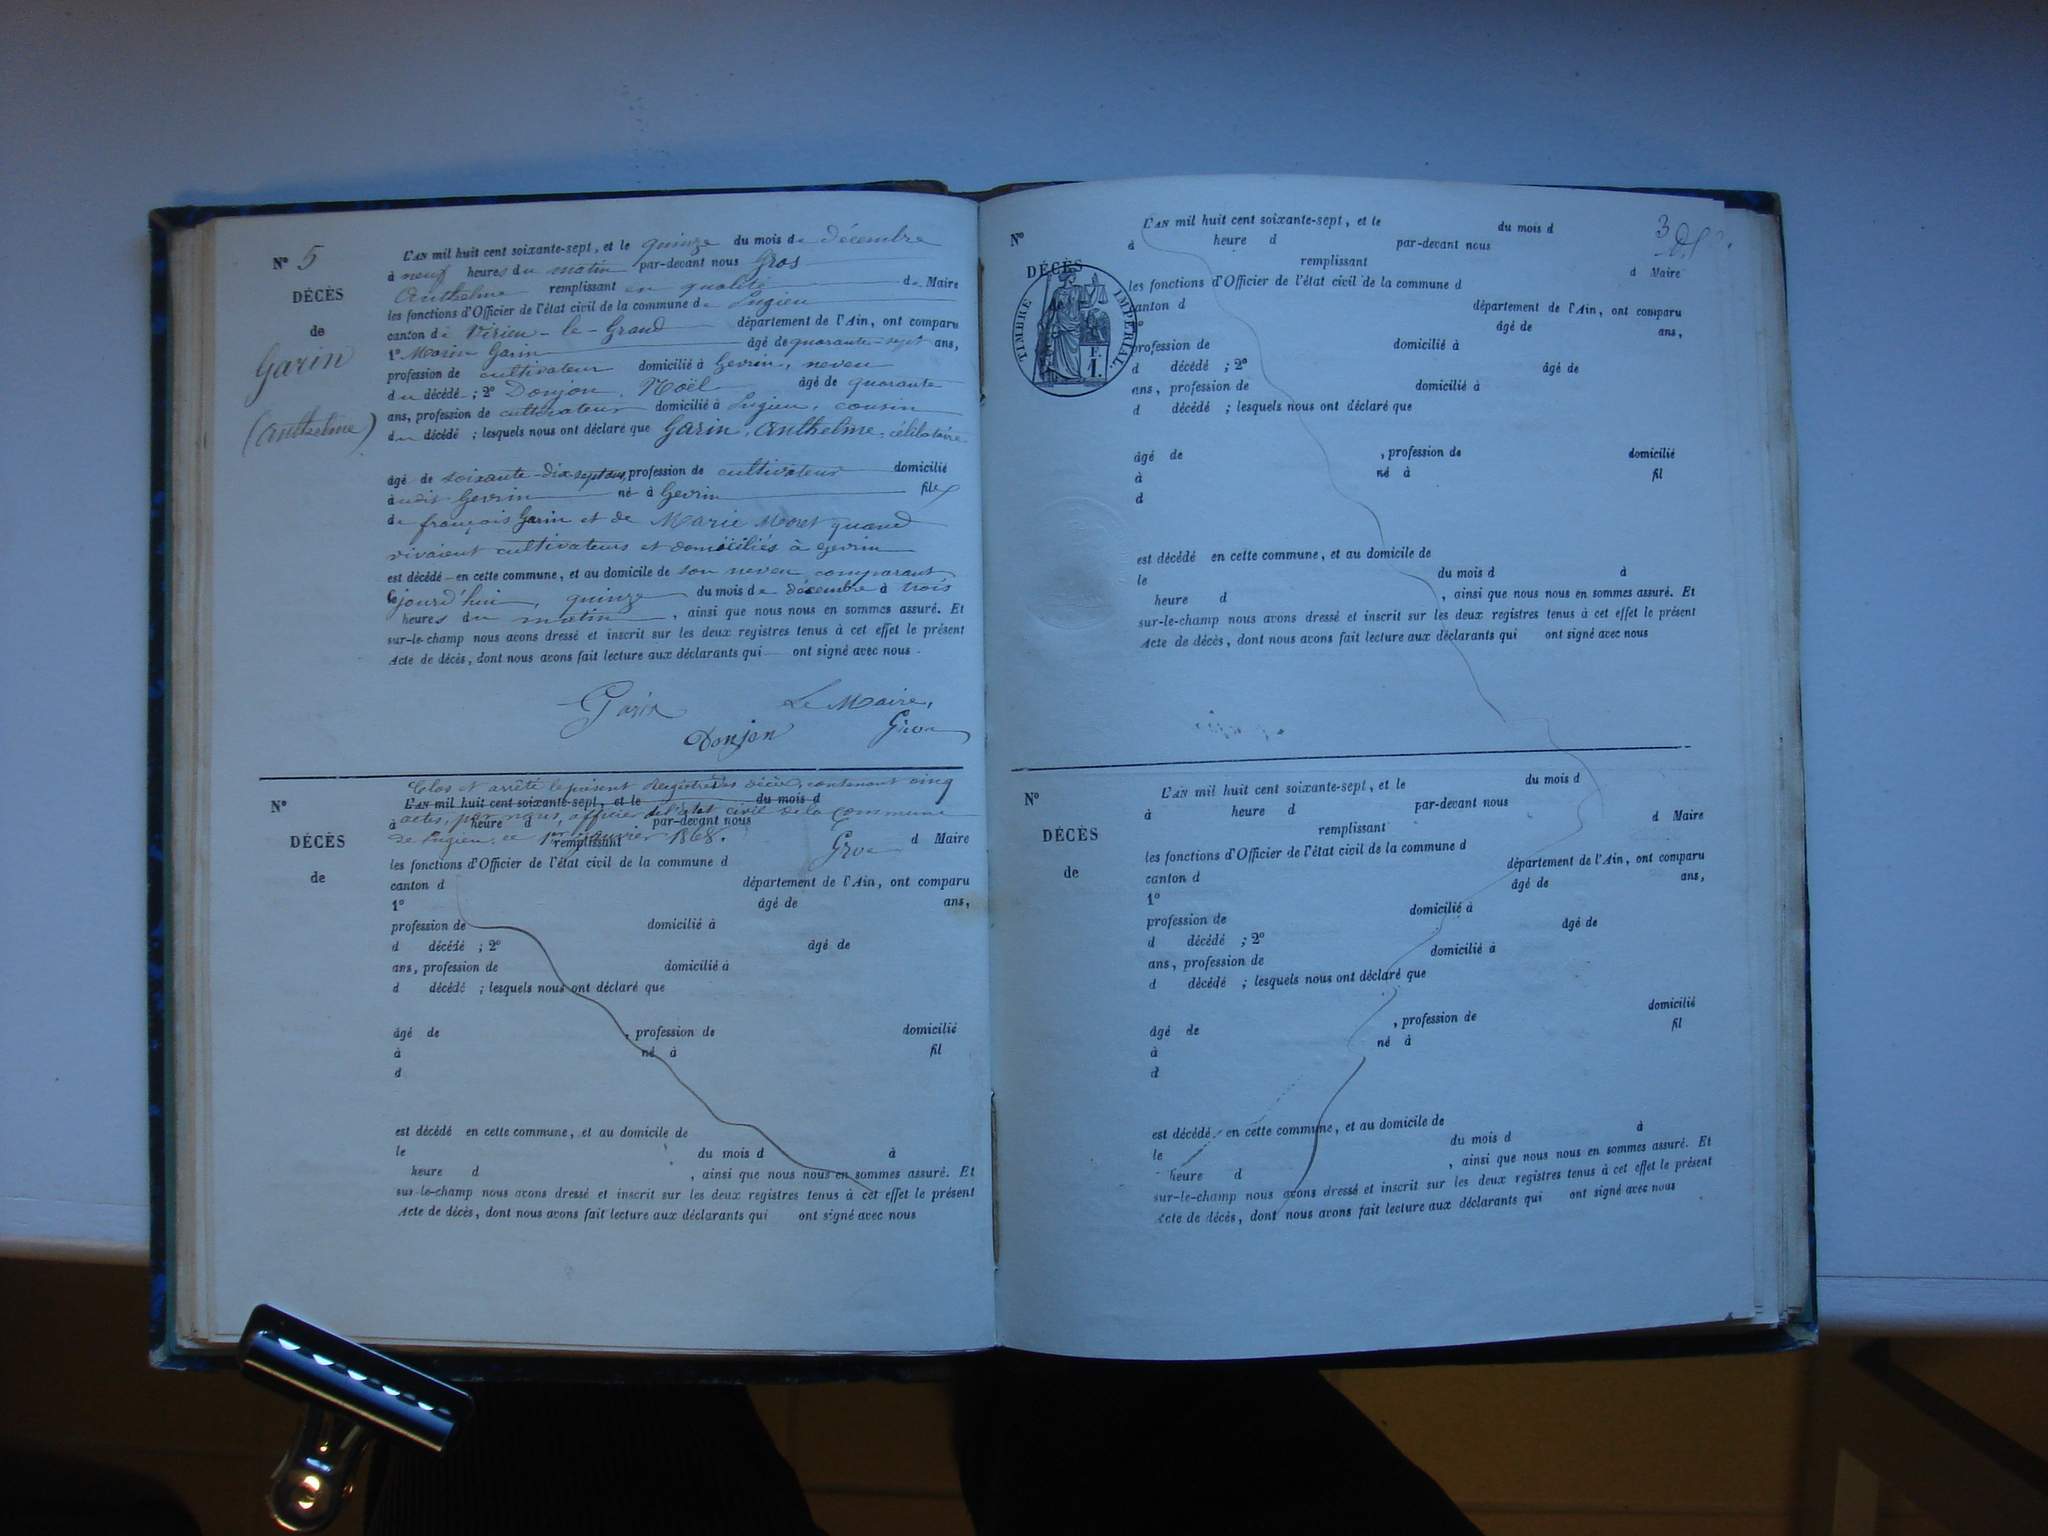 N° 5
DÉCÈS
de
Garin
(Anthelme)
L'AN mil huit cent soixante-sept, et le quinze du mois de décembre
à neuf heures du matin par-devant nous Gros
Anthelme remplissant en qualité de Maire
les fonctions d'Officier de l'état civil de la commune de Pugieu
canton de Virieu-le-Grand département de l'Ain, ont comparu
1° Garin âgé de quarante-sept ans,
profession de cultivateur domicilié à Gevrin, neveu
du décédé ; 2° Donjon, Noël âgé de quarante
ans, profession de cultivateur domicilié à Pugieu, cousin
du décédé ; lesquels nous ont déclaré que Garin, Anthelme, célibataire
âgé de soixante-dix-sept ans, profession de cultivateur domicilié
à udit Gevrin né à Gevrin fils
de françois Garin et de Marie Moret quand
vivaient cultivateurs et domiciliés à Gevrin
est décédé en cette commune, et au domicile de son neveu comparant
Cejourd'hui, quinze du mois de décembre à trois
heures du matin, ainsi que nous nous en sommes assuré. Et
sur-le-champ nous avons dressé et inscrit sur les deux registres tenus à cet effet le présent
Acte de décès, dont nous avons fait lecture aux déclarants qui ont signé avec nous.
Garin Le Maire,
Donjon Gros
N°
DÉCÈS
de
Clos et arrêté le présent Registre des décès, contenant cinq
L'AN mil huit cent soixante-sept, et le du mois d
actes, par nous, officier de l'état civil de la commune
à heure d , par-devant nous
de Pugieu, ce 1er janvier 1868.
remplissant Gros d Maire
les fonctions d'Officier de l'état civil de la commune d
canton d département de l'Ain, ont comparu
1° âgé de ans,
profession de domicilié à
d décédé ; 2° âgé de
ans, profession de domicilié à
d décédé ; lesquels nous ont déclaré que
âgé de , profession de domicilié
à né à fil
d
est décédé en cette commune, et au domicile de
le du mois d à
heure d , ainsi que nous nous en sommes assuré. Et
sur-le-champ nous avons dressé et inscrit sur les deux registres tenus à cet effet le présent
Acte de décès, dont nous avons fait lecture aux déclarants qui ont signé avec nous
3
N°
DÉCÈS
TIMBRE IMPÉRIAL.
1 F.
L'AN mil huit cent soixante-sept, et le du mois d
à heure d par-devant nous
remplissant d Maire
les fonctions d'Officier de l'état civil de la commune d
canton d département de l'Ain, ont comparu
1° âgé de ans,
profession de domicilié à
d décédé ; 2° âgé de
ans, profession de domicilié à
d décédé ; lesquels nous ont déclaré que
âgé de , profession de domicilié
à né à fil
d
est décédé en cette commune, et au domicile de
le du mois d à
heure d , ainsi que nous nous en sommes assuré. Et
sur-le-champ nous avons dressé et inscrit sur les deux registres tenus à cet effet le présent
Acte de décès, dont nous avons fait lecture aux déclarants qui ont signé avec nous
N°
DÉCÈS
de
L'AN mil huit cent soixante-sept, et le du mois d
à heure d par-devant nous
remplissant d Maire
les fonctions d'Officier de l'état civil de la commune d
canton d département de l'Ain, ont comparu
1° âgé de ans,
profession de domicilié à
d décédé ; 2° âgé de
ans, profession de domicilié à
d décédé ; lesquels nous ont déclaré que
âgé de , profession de domicilié
à né à fil
d
est décédé en cette commune, et au domicile de
le du mois d à
heure d , ainsi que nous nous en sommes assuré. Et
sur-le-champ nous avons dressé et inscrit sur les deux registres tenus à cet effet le présent
Acte de décès, dont nous avons fait lecture aux déclarants qui ont signé avec nous